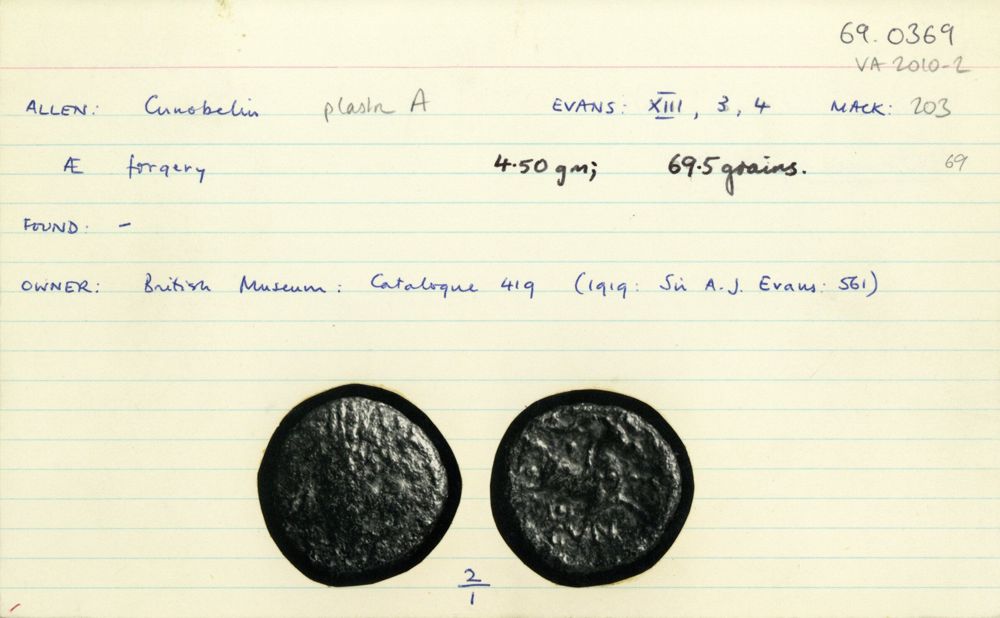 69.0369
VA 2010-2
ALLEN: Cunobelin plastr A EVANS: XIII, 3, 4 MACK: 203
Æ forgery 4.50 gm; 69.5 grains. 69
FOUND: -
OWNER: British Museum: Catalogue 419 (1919: Sir A.J. Evans: 561)
CVN
2
1